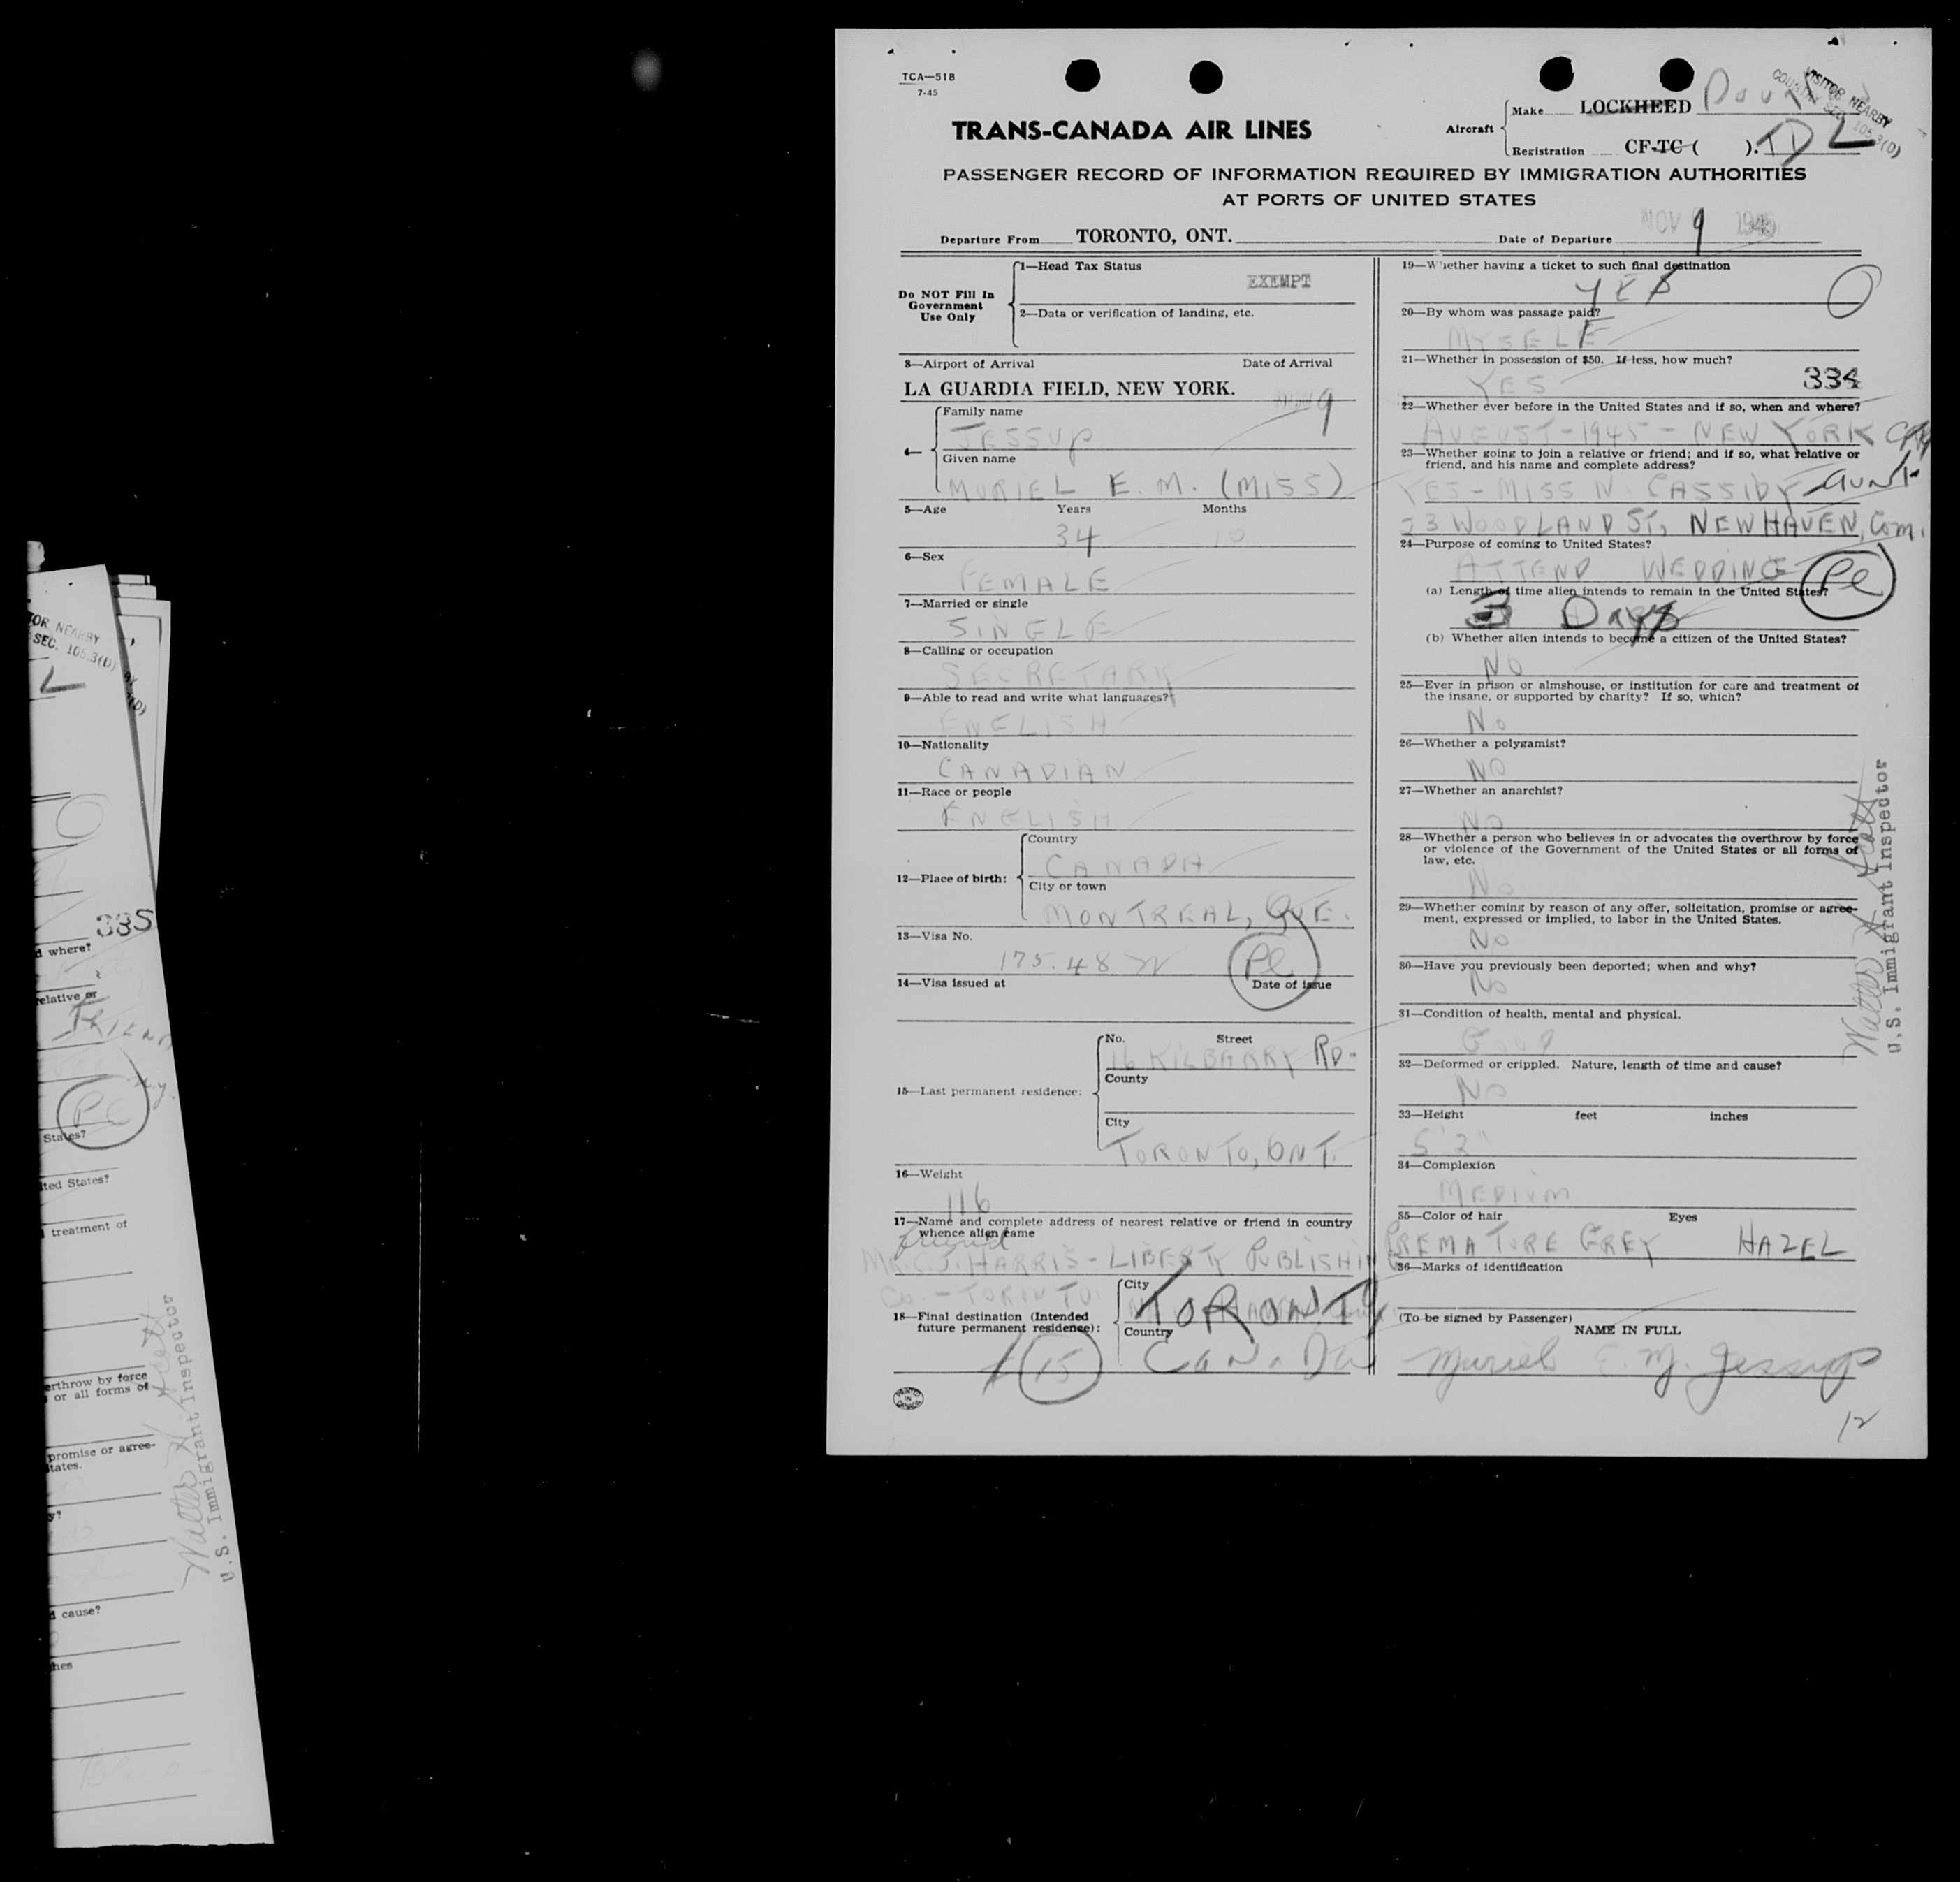 TCA—518
7-45
TRANS-CANADA AIR LINES
Aircraft
Make LOCKHEED
Registration CF-TC ( ). TDL
VISITOR NEARBY
COUNTRY SEC. 105.3(D)
PASSENGER RECORD OF INFORMATION REQUIRED BY IMMIGRATION AUTHORITIES
AT PORTS OF UNITED STATES
Departure From TORONTO, ONT. Date of Departure NOV 9 1945
Do NOT Fill In
Government
Use Only
1—Head Tax Status
EXEMPT
2—Data or verification of landing, etc.
3—Airport of Arrival Date of Arrival
LA GUARDIA FIELD, NEW YORK. 9
4—
Family name
JESSUP
Given name
MURIEL E. M. (MISS)
5—Age Years Months
34 10
6—Sex
FEMALE
7—Married or single
SINGLE
8—Calling or occupation
SECRETARY
9—Able to read and write what languages?
ENGLISH
10—Nationality
CANADIAN
11—Race or people
ENGLISH
12—Place of birth:
Country
CANADA
City or town
MONTREAL, QUE.
13—Visa No.
175.48
14—Visa issued at Date of issue
15—Last permanent residence:
No. Street
16 KILBARRY RD.
County
City
TORONTO, ONT.
16—Weight
116
17—Name and complete address of nearest relative or friend in country
whence alien came
friend
MR. C. J. HARRIS - LIBERTY PUBLISHING
CO. - TORONTO
18—Final destination (Intended
future permanent residence):
City
TORONTO
Country
CANADA
15
PRINTED IN CANADA
19—Whether having a ticket to such final destination
YES
20—By whom was passage paid?
MYSELF
21—Whether in possession of $50. If less, how much?
YES
334
22—Whether ever before in the United States and if so, when and where?
AUGUST - 1945 - NEW YORK CITY
23—Whether going to join a relative or friend; and if so, what relative or
friend, and his name and complete address?
YES - MISS N. CASSIDY - AUNT
WOODLAND ST, NEW HAVEN, Conn.
24—Purpose of coming to United States?
ATTEND WEDDING
(a) Length of time alien intends to remain in the United States?
3 DAYS
(b) Whether alien intends to become a citizen of the United States?
NO
25—Ever in prison or almshouse, or institution for care and treatment of
the insane, or supported by charity? If so, which?
No
26—Whether a polygamist?
NO
27—Whether an anarchist?
No
28—Whether a person who believes in or advocates the overthrow by force
or violence of the Government of the United States or all forms of
law, etc.
No
29—Whether coming by reason of any offer, solicitation, promise or agree-
ment, expressed or implied, to labor in the United States.
No
30—Have you previously been deported; when and why?
No
31—Condition of health, mental and physical.
GOOD
32—Deformed or crippled. Nature, length of time and cause?
No
33—Height feet inches
5'2"
34—Complexion
MEDIUM
35—Color of hair Eyes
PREMATURE GREY HAZEL
36—Marks of identification
(To be signed by Passenger)
NAME IN FULL
Muriel E. M. Jessup
12
U.S. Immigrant Inspector
TOR NEARBY
SEC. 105.3(D)
L
385
d where?
elative or
FRIEND
States?
ted States?
treatment of
erthrow by force
or all forms of
promise or agree-
tates.
y?
d cause?
hes
U.S. Immigrant Inspector